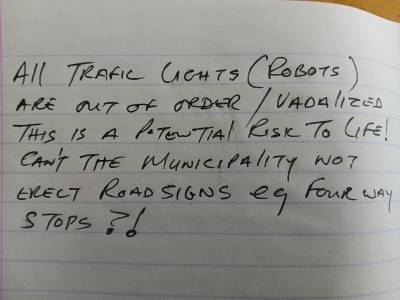 All TRAFIC LIGHTS (ROBOTS)
ARE OUT OF ORDER / VADALIZED
THIS IS A POTENTIAL RISK TO LIFE!
CAN'T THE MUNICIPALITY NOT
ERECT ROADSIGNS eg FOUR WAY
STOPS ?!